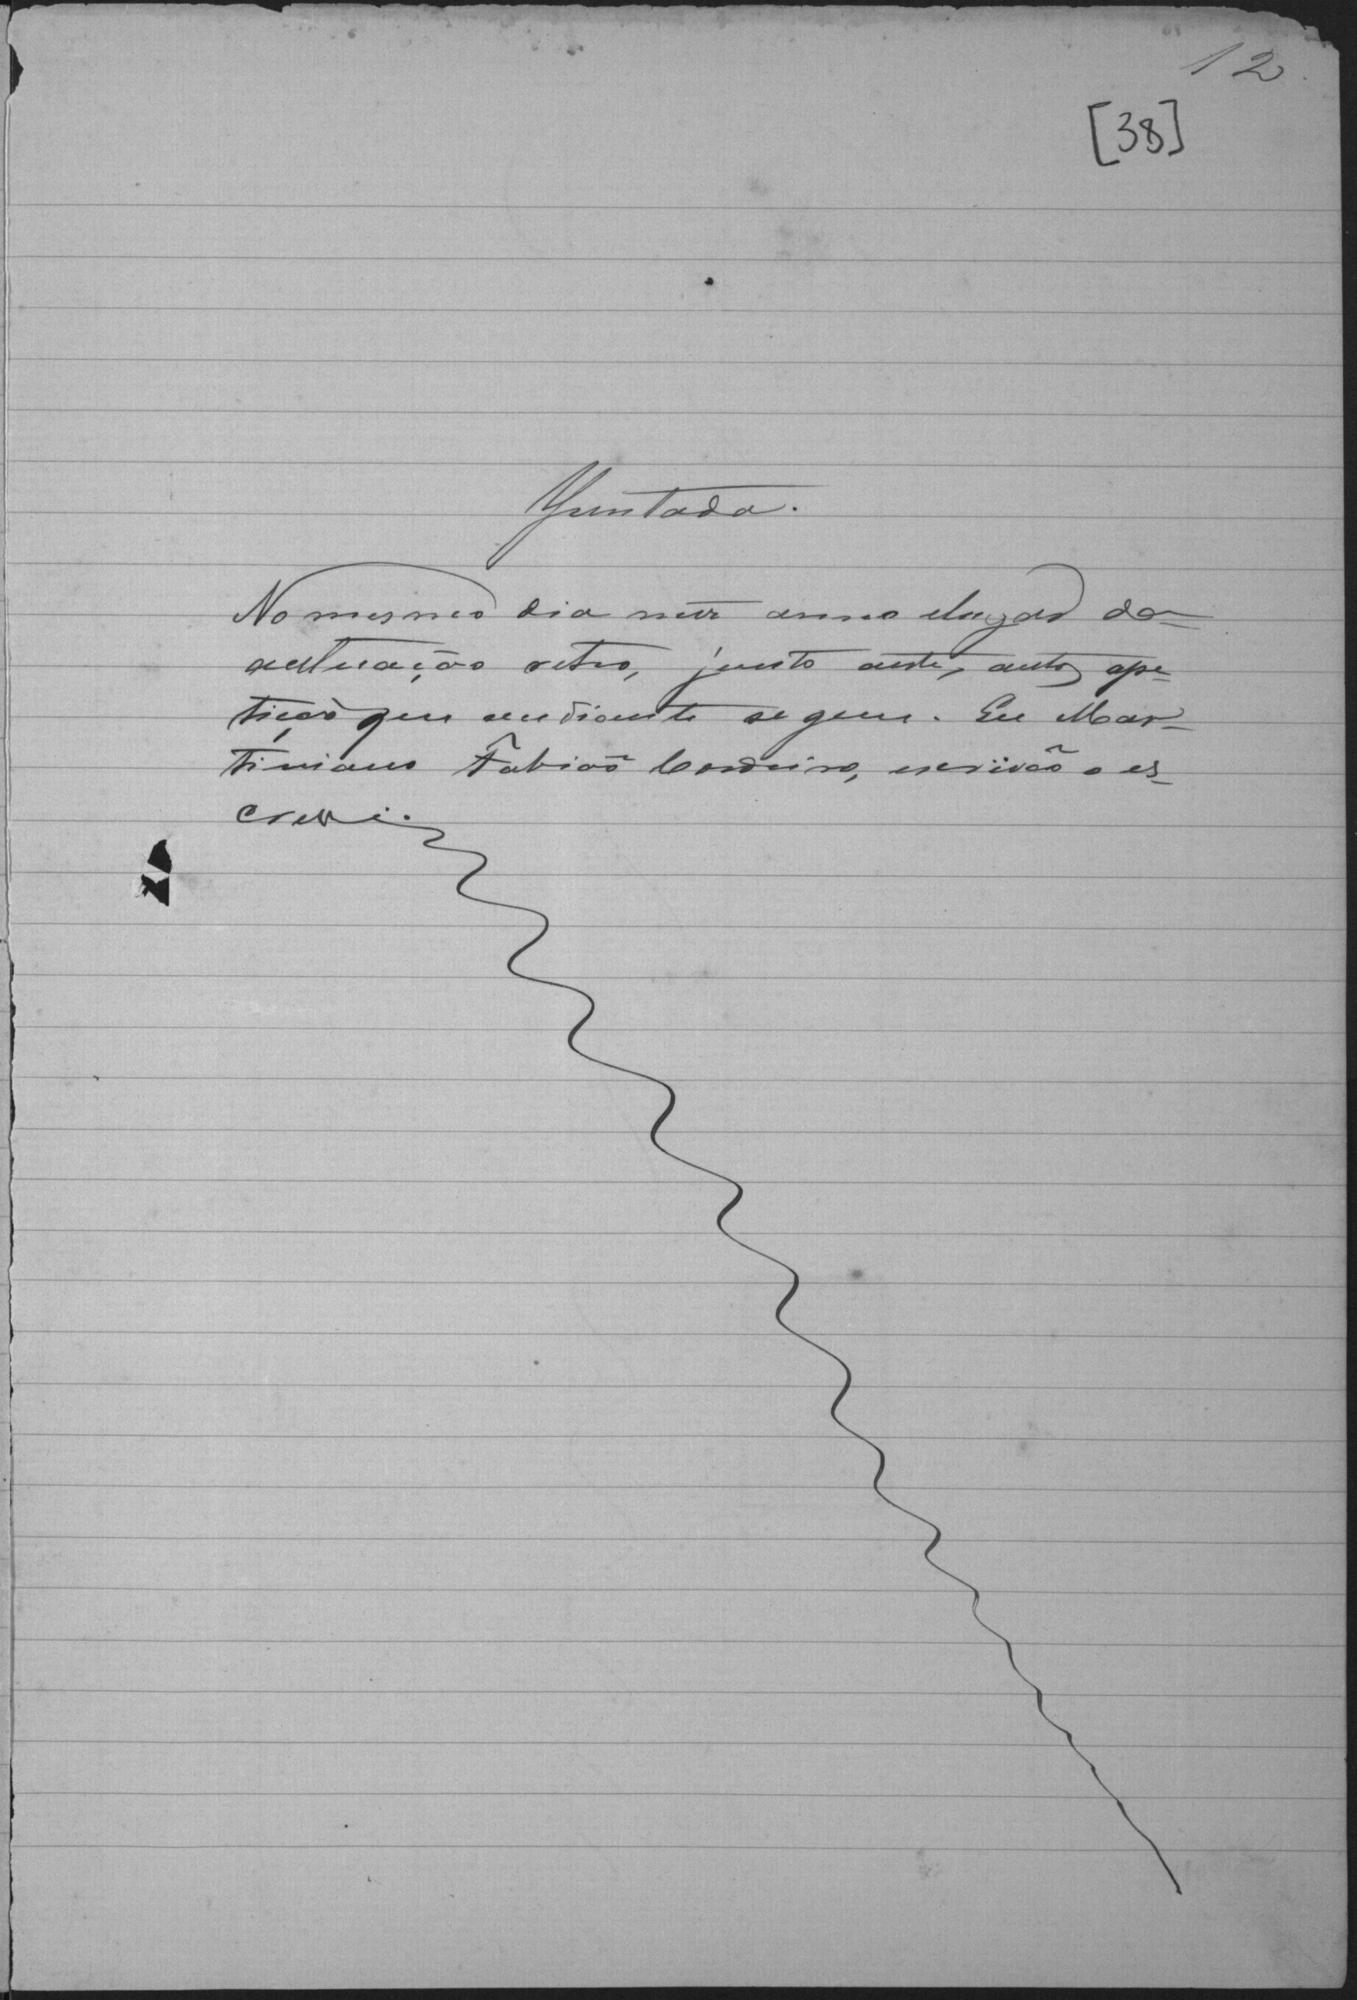 12
[38]
Juntada.
No mesmo dia mez anno elugar da
actuação retro, junto aestes autos ape-
tição que endiante segue. Eu Mar-
tiniano Fabião Cordeiro, escrivão o es-
crevi.